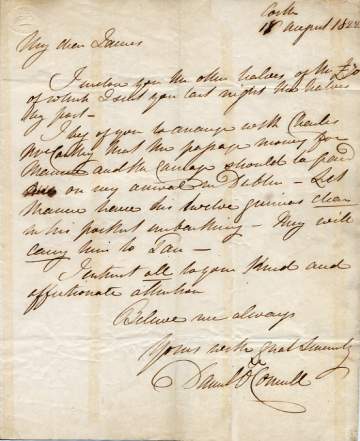 Cork
18 August 1822
My dear James
I inclose you the other halves of the
of which I sent you last night the halves
by post —
I beg of you to arrange with Charles
McCarthy that the passage money for
Maurice and the carriage should be paid
on my arrival in Dublin — Let
Maurice have his twelve guineas clear
in his pocket on embarking — They will
carry him to Pau —
I entrust all to your kind and
affectionate attention
Believe me always
Yours with great sincerity
Daniel O'Connell